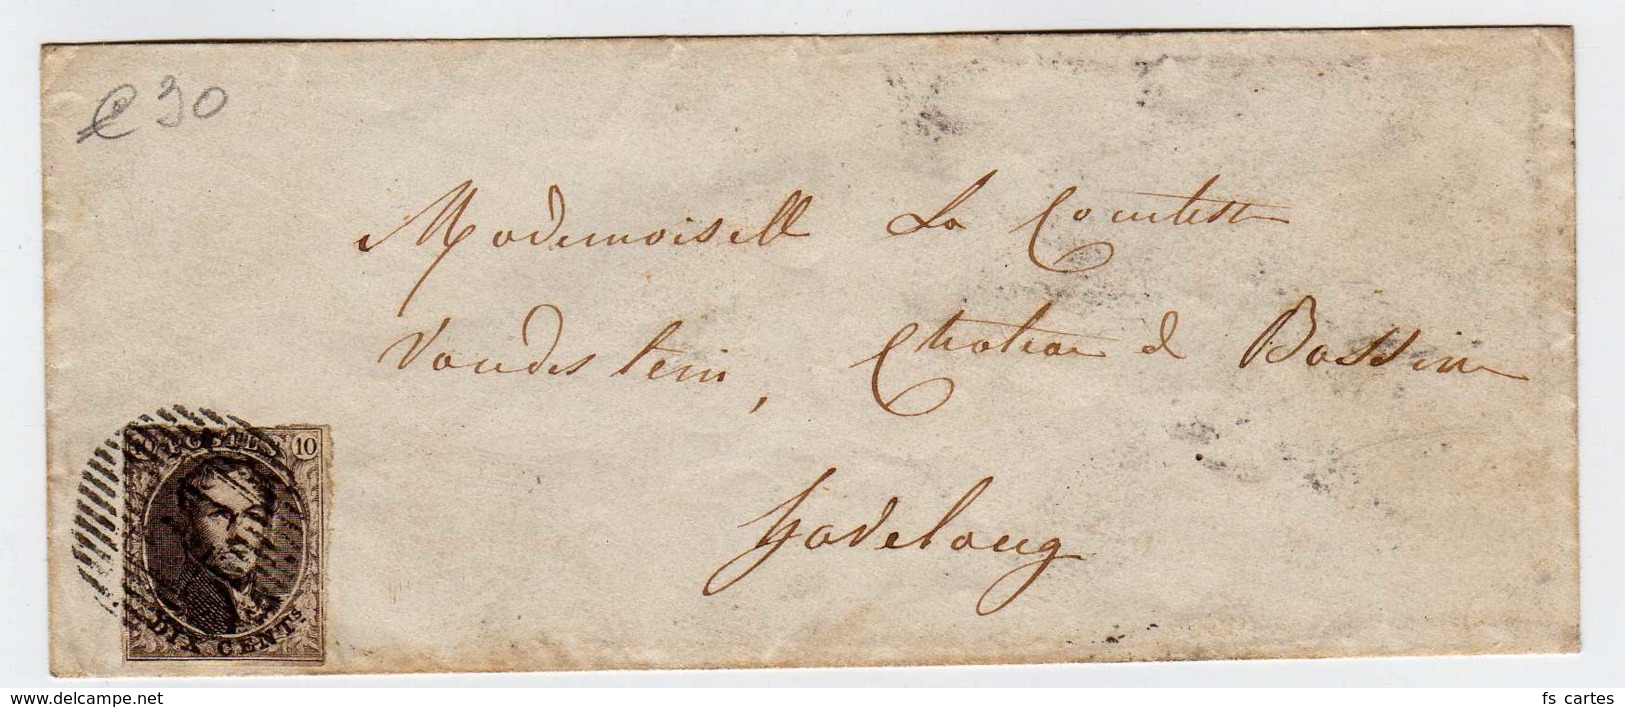 € 30
Mademoiselle La Comtesse
Vanderstein, Chateau de Bossin
Havelang
10 POSTES 10
DIX CENTS
www.delcampe.net
fs cartes